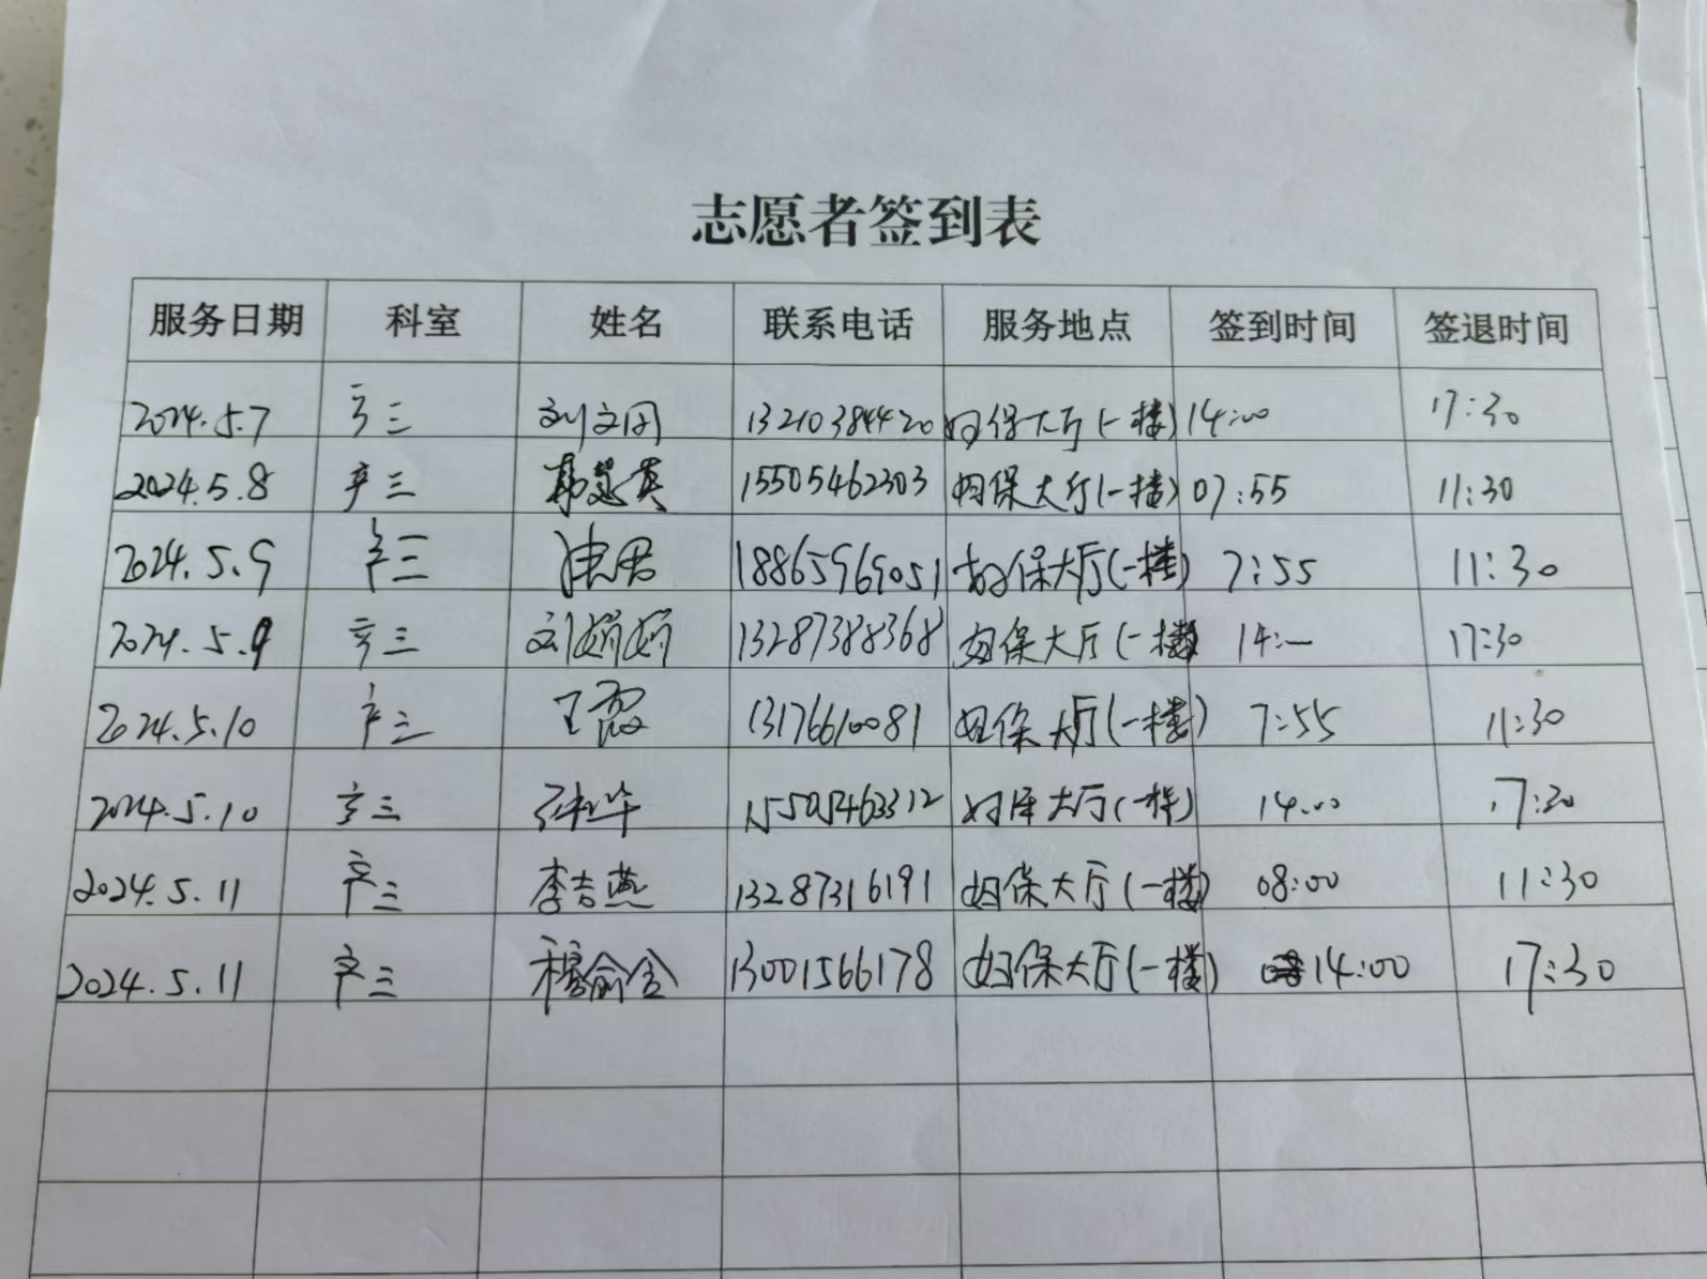 志愿者签到表
服务日期 科室 姓名 联系电话 服务地点 签到时间 签退时间
2024.5.7 三 刘文 13210384420 妇保大厅(一楼) 14:00 17:30
2024.5.8 产三 英 15505462303 妇保大厅(一楼) 07:55 11:30
2024.5.9 产三 君 18865969051 妇保大厅(一楼) 7:55 11:30
2024.5.9 产三 刘娟娟 13287388368 妇保大厅(一楼) 14:— 17:30
2024.5.10 产三 王霞 13176610081 妇保大厅(一楼) 7:55 11:30
2024.5.10 产三 华 15505463312 妇保大厅(一楼) 14:00 17:30
2024.5.11 产三 李吉燕 13287316191 妇保大厅(一楼) 08:00 11:30
2024.5.11 产三 13001566178 妇保大厅(一楼) 14:00 17:30